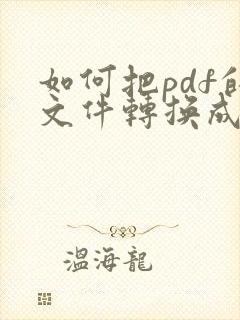 如何把pdf的
文件轉換成
溫海龍